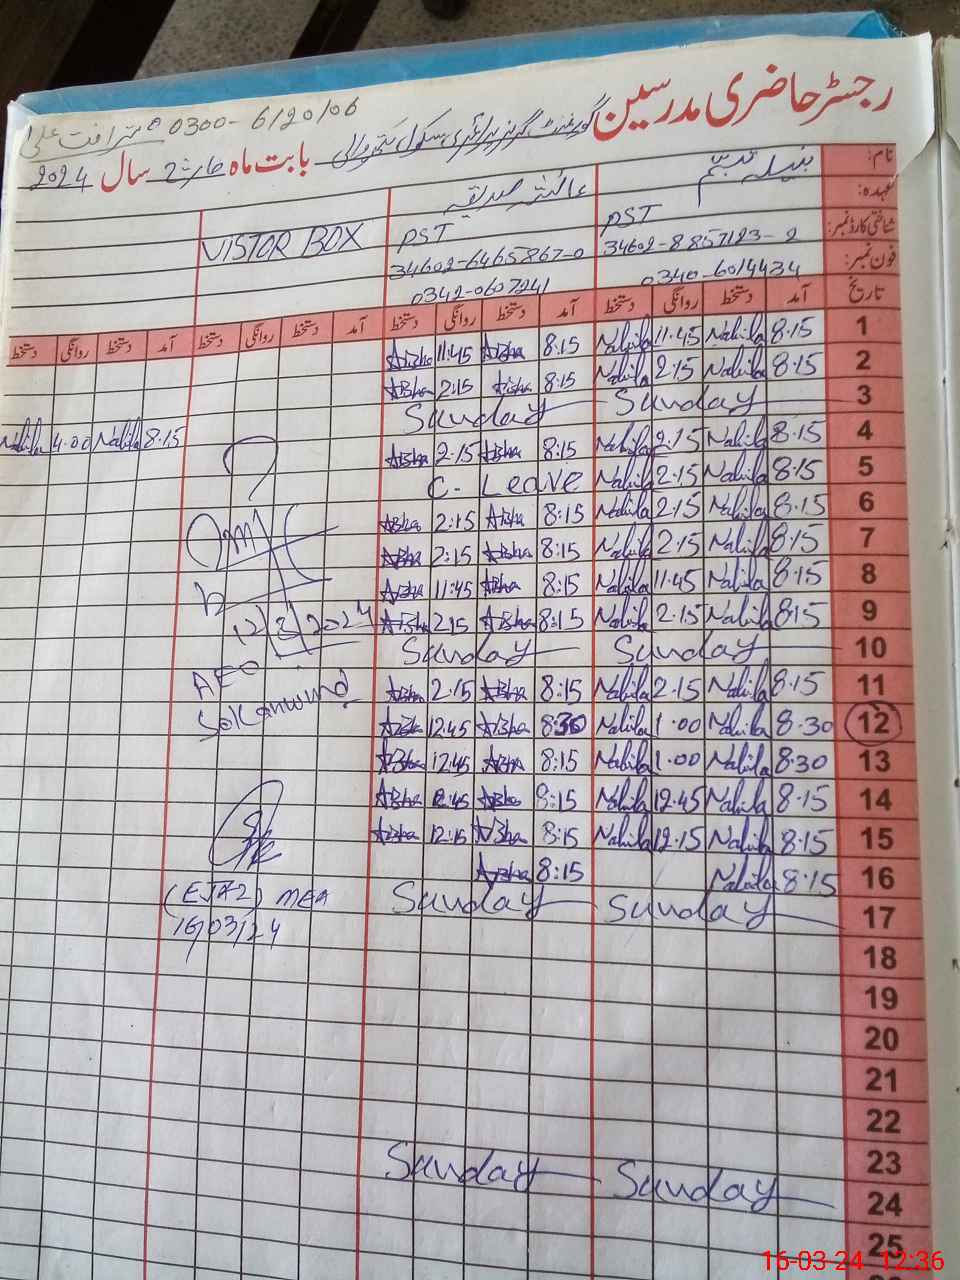 رجسٹر حاضری مدرسین گورنمنٹ گرلز پرائمری سکول
0300-6120106
بابت ماہ مارچ سال 2024
نام:
عہدہ: PST PST VISTOR BOX
شناختی کارڈ نمبر: 34602-8857123-2 34602-6465867-0
فون نمبر: 0340-6014434 0342-0607241
تاریخ آمد دستخط روانگی دستخط آمد دستخط روانگی دستخط آمد دستخط روانگی دستخط آمد دستخط روانگی دستخط
1 8:15 Nabila 11:45 Nabila 8:15 Aisha 11:45 Aisha
2 8:15 Nabila 2:15 Nabila 8:15 Aisha 2:15 Aisha
3 Sunday Sunday
4 8:15 Nabila 2:15 Nabila 8:15 Aisha 2:15 Aisha 8:15 Nabila 4:00 Nabila
5 8:15 Nabila 2:15 Nabila C. Leave
6 8:15 Nabila 2:15 Nabila 8:15 Aisha 2:15 Aisha
7 8:15 Nabila 2:15 Nabila 8:15 Aisha 2:15 Aisha
8 8:15 Nabila 11:45 Nabila 8:15 Aisha 11:45 Aisha
9 8:15 Nabila 2:15 Nabila 8:15 Aisha 2:15 Aisha
12/3/2024
10 Sunday Sunday
AEO
11 8:15 Nabila 2:15 Nabila 8:15 Aisha 2:15 Aisha
12 8:30 Nabila 1:00 Nabila 8:30 Aisha 12:45 Aisha
13 8:30 Nabila 1:00 Nabila 8:15 Aisha 12:45 Aisha
14 8:15 Nabila 12:45 Nabila 8:15 Aisha 12:45 Aisha
15 8:15 Nabila 12:15 Nabila 8:15 Aisha 12:15 Aisha
16 8:15 Nabila 8:15 Aisha
17 Sunday Sunday
MEA
16/03/24
18
19
20
21
22
23
24 Sunday Sunday
25
16-03-24 12:36